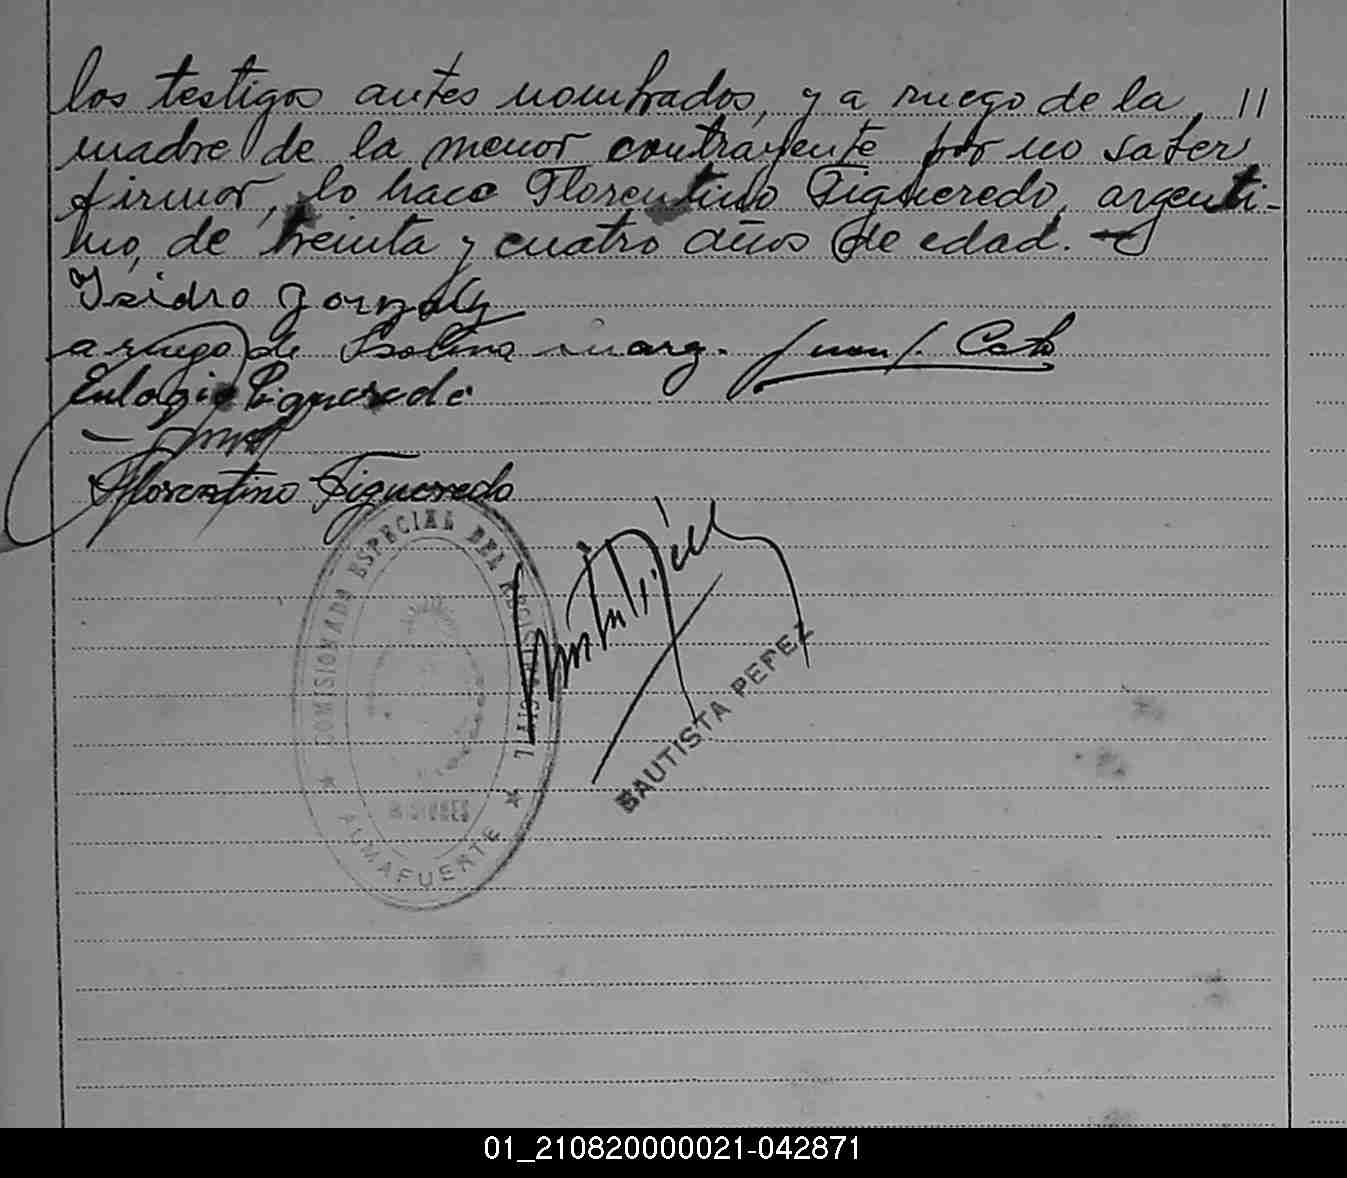 los testigos antes nombrados, y a ruego de la //
madre de la menor contrayente por no saber
firmar, lo hace Florentino Figueredo, argenti-
no, de treinta y cuatro años de edad.
Isidro Gonzalez
a ruego de Isolina marq. Juan J.
Eulogio Figueredo
Florentino Figueredo
COMISIONADO ESPECIAL DEL REGISTRO CIVIL
MISIONES
ALMAFUERTE
BAUTISTA PEREZ
01_210820000021-042871